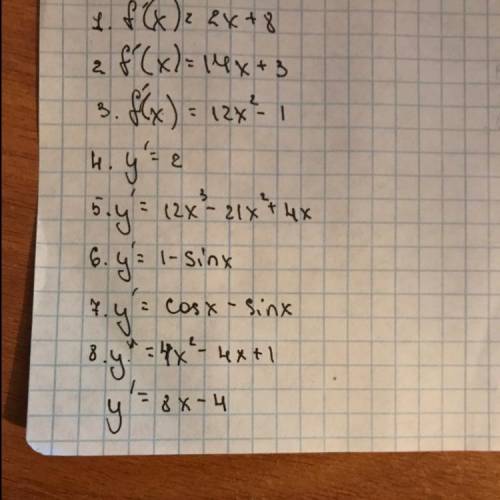 1. f'(x) = 2x + 8
2 f'(x) = 14x + 3
3. f'(x) = 12x² - 1
4. y' = 2
5. y' = 12x³ - 21x² + 4x
6. y' = 1 - sinx
7. y' = cosx - sinx
8. y = 4x² - 4x + 1
y' = 8x - 4